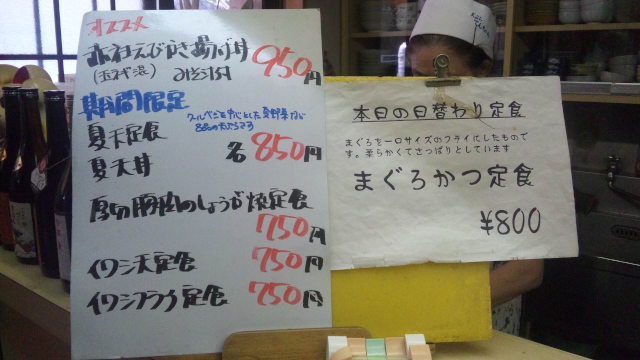 オススメ
赤エビかき揚げ丼 950円
みそ汁付
期間限定
夏天定食
夏天丼
各850円
厚切豚肉のしょうが焼定食
750円
イワシ天定食 750円
イワシフライ定食 750円
本日の日替わり定食
まぐろを一口サイズのフライにしたもので
す。柔らかくてさっぱりとしています
まぐろかつ定食
¥800